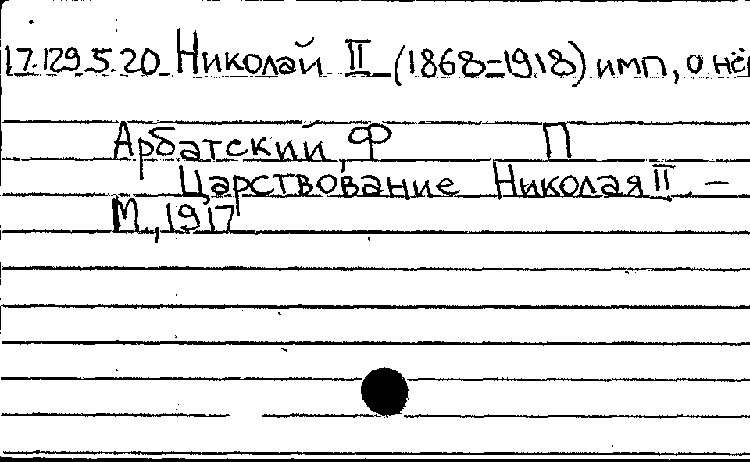 17.129.5.20 Николай II (1868-1918) имп, о нём
Арбатский, Ф П
Царствование Николая II. —
М., 1917